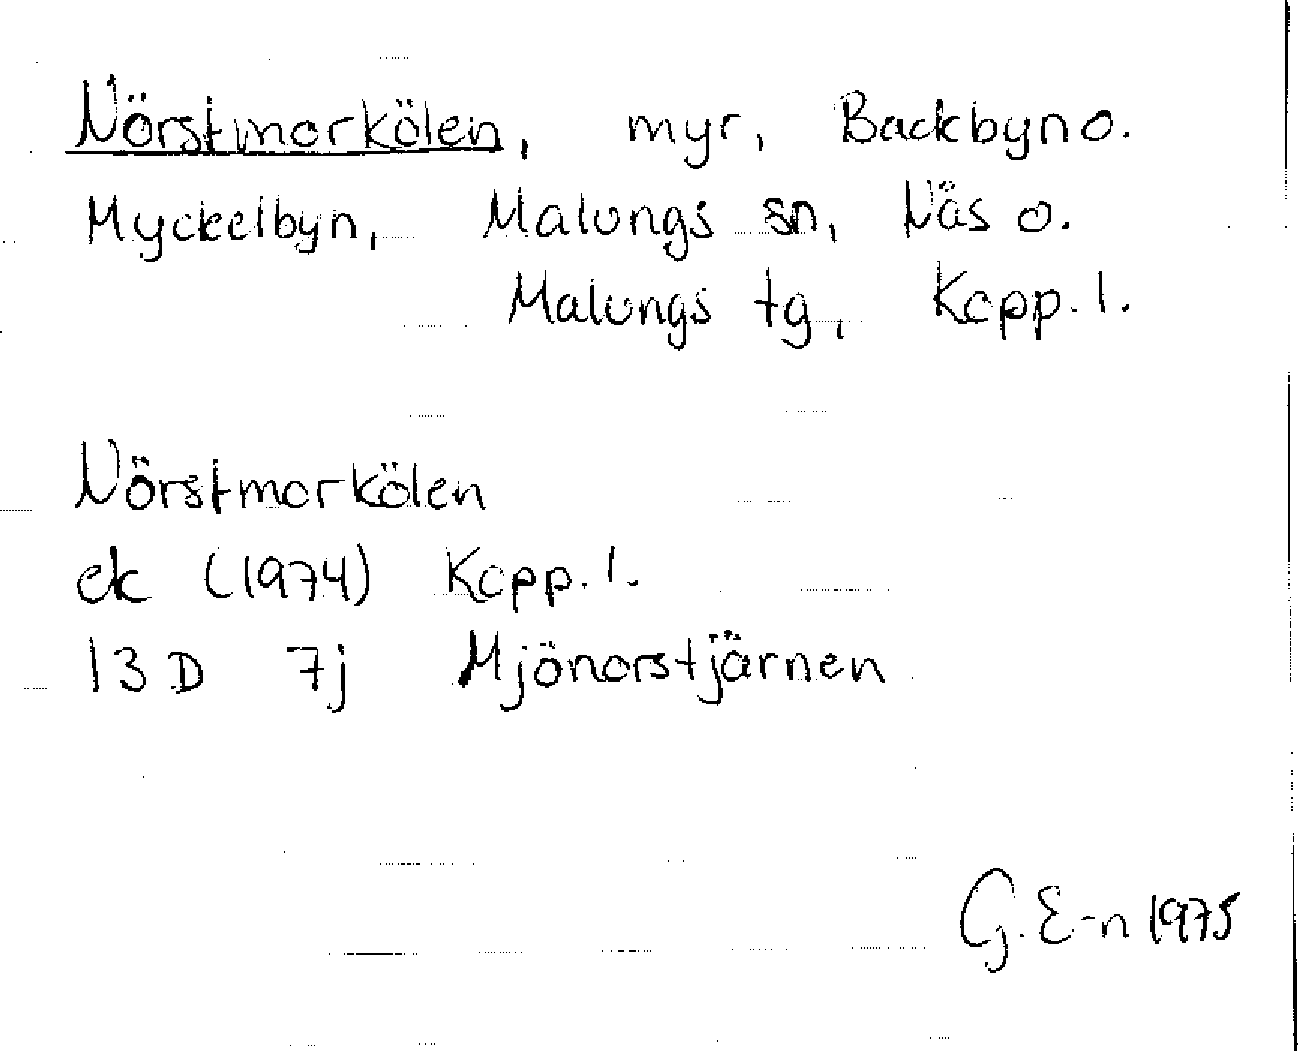 Nörstmorkölen, myr, Backbyn o.
Myckelbyn, Malungs sn, Näs o.
Malungs tg, Kopp. l.
Nörstmorkölen
ek (1974) Kopp. l.
13 D 7j Mjönorstjärnen
G. E-n 1975